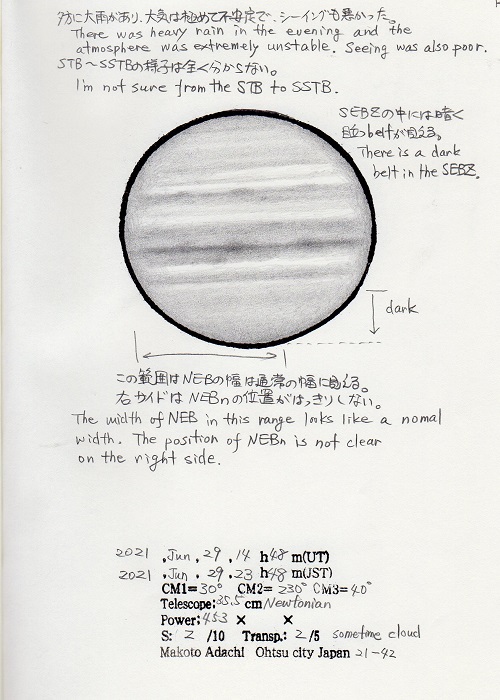 夕方に大雨があり、大気は極めて不安定で、シーイングも悪かった。
There was heavy rain in the evening and the
atmosphere was extremely unstable. Seeing was also poor.
STB〜SSTBの様子は全く分からない。
I'm not sure from the STB to SSTB.
SEBZの中には暗く
目立つbeltが見える。
There is a dark
belt in the SEBZ.
dark
この範囲はNEBの幅は通常の幅に見える。
右サイドはNEBnの位置がはっきりしない。
The width of NEB in this range looks like a nomal
width. The position of NEBn is not clear
on the right side.
2021 .Jun . 29 . 14 h48 m(UT)
2021 .Jun . 29 . 23 h48 m(JST)
CM1=30° CM2= 230° CM3=40°
Telescope;35.5 cm Newtonian
Power;453 × ×
S: 2 /10 Transp.: 2 /5 sometime cloud
Makoto Adachi Ohtsu city Japan 21-42